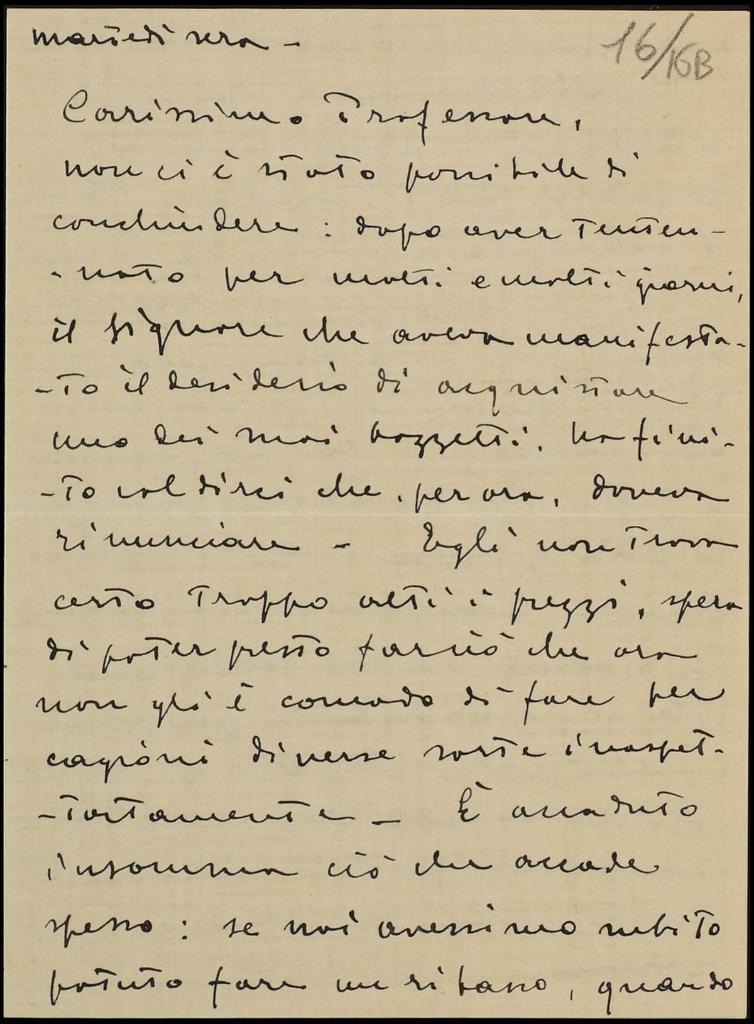 martedì sera -
16/16B
Carissimo Professore,
non ci è stato possibile di
conchiudere : dopo aver tenten-
-nato per molti e molti giorni,
il signore che aveva manifesta-
-to il desiderio di acquistare
uno dei suoi bozzetti, ha fini-
-to col dirci che, per ora, doveva
rinunciare - Egli non trova
certo troppo alti i prezzi, spera
di poter presto far ciò che ora
non gli è comodo di fare per
cagioni diverse sorte inaspet-
-tatamente - È accaduto
insomma ciò che accade
spesso : se noi avessimo subito
potuto fare un ribasso, quando